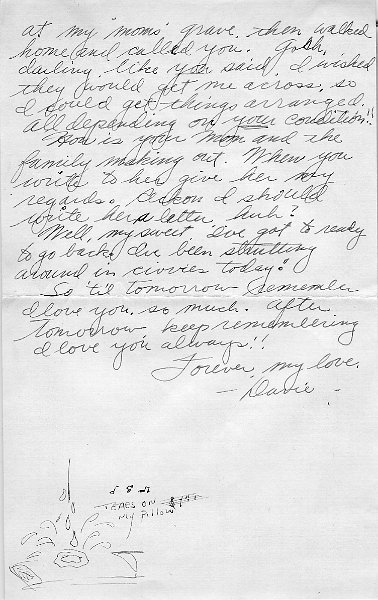 at my moms' grave, then walked
home and called you. Gosh,
darling, like you said, I wished
they would get me across, so
I could get things arranged.
all depending on your condition!!
How is your Mom and the
family making out. When you
write to her, give her my
regards. Reckon I should
write her a letter huh?
Well, my sweet I've got to ready
to go back. I've been strutting
around in civvies today."
So 'til tomorrow remember
I love you, so much. After
tomorrow keep remembering
I love you always!!
Forever, my love.
— Davie —
TEARS ON
MY PILLOW